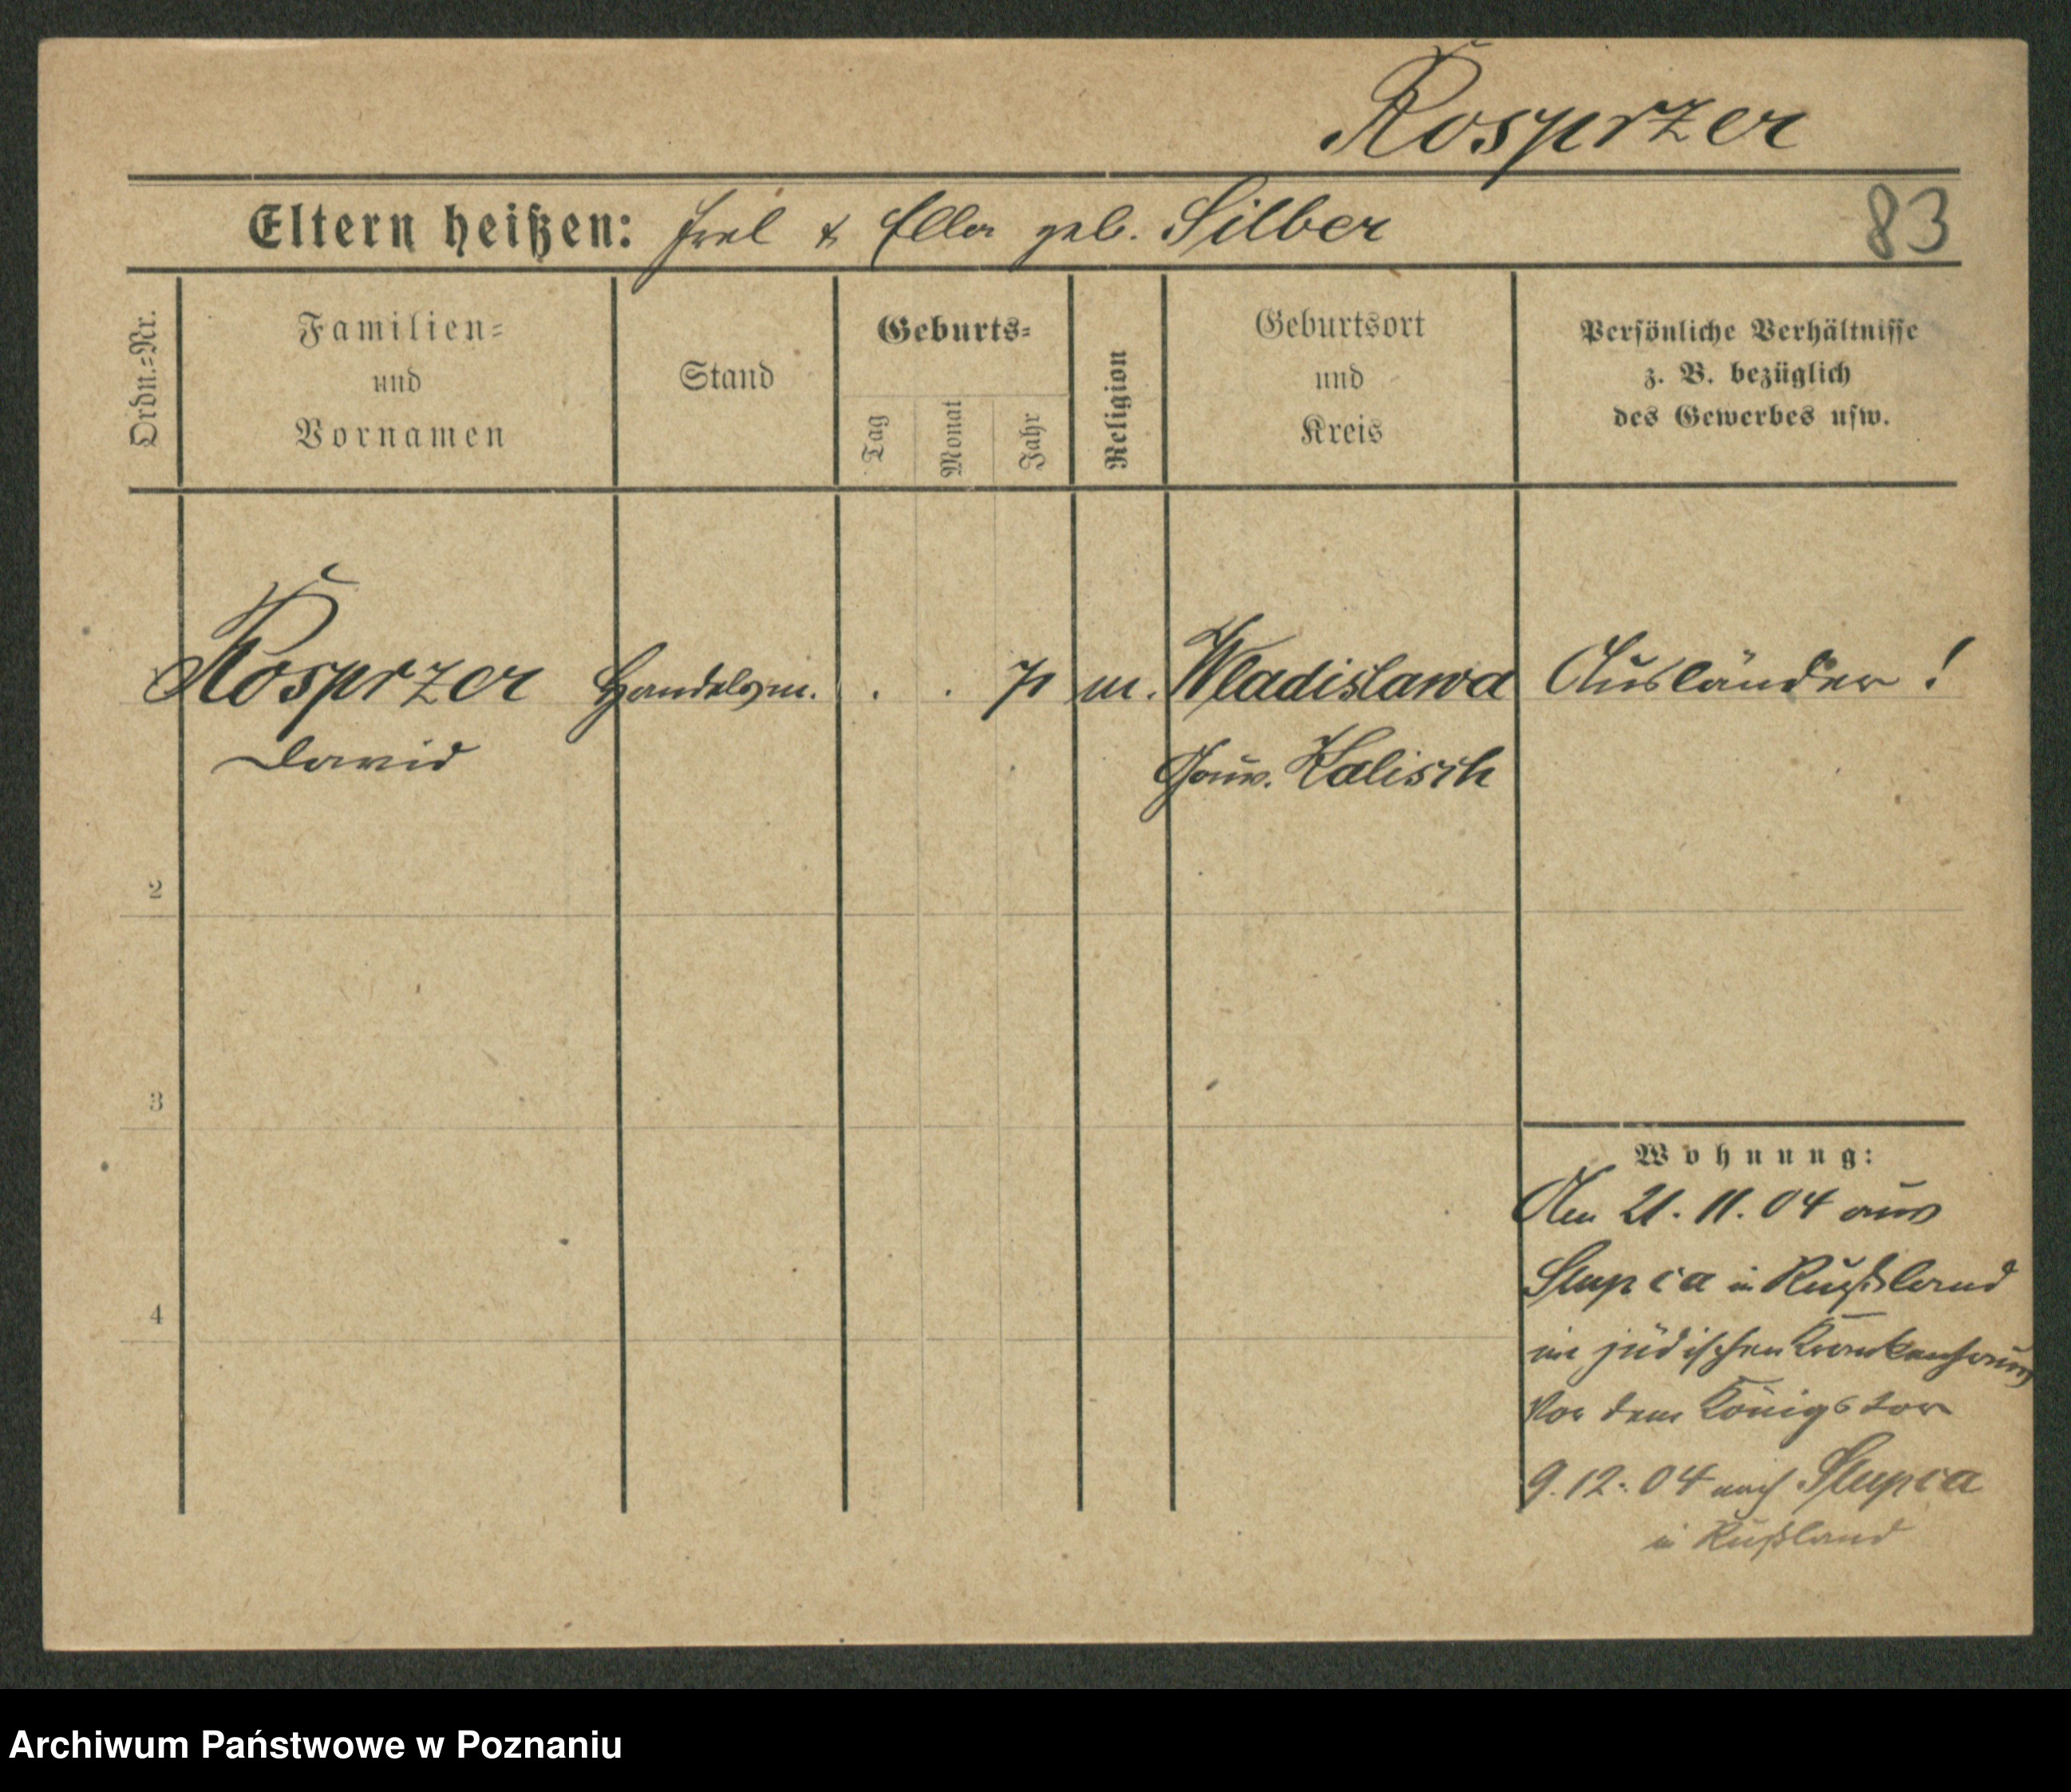 Rosprzer
Eltern heißen: Isral & Ella geb. Silber
83
Ordn.=Nr.
Familien=
und
Vornamen
Stand
Geburts=
Tag
Monat
Jahr
Religion
Geburtsort
und
Kreis
Persönliche Verhältnisse
z. B. bezüglich
des Gewerbes usw.
Rosprzer Handelsm. . . m. Wladislawa Ausländer!
David Gouv. Kalisch
2
3
4
Wohnung:
Am 21.11.04 aus
Slupca in Russland
im jüdischen Krankenhaus
Vor dem Königstor
9.12.04 nach Slupca
in Rußland
Archiwum Państwowe w Poznaniu